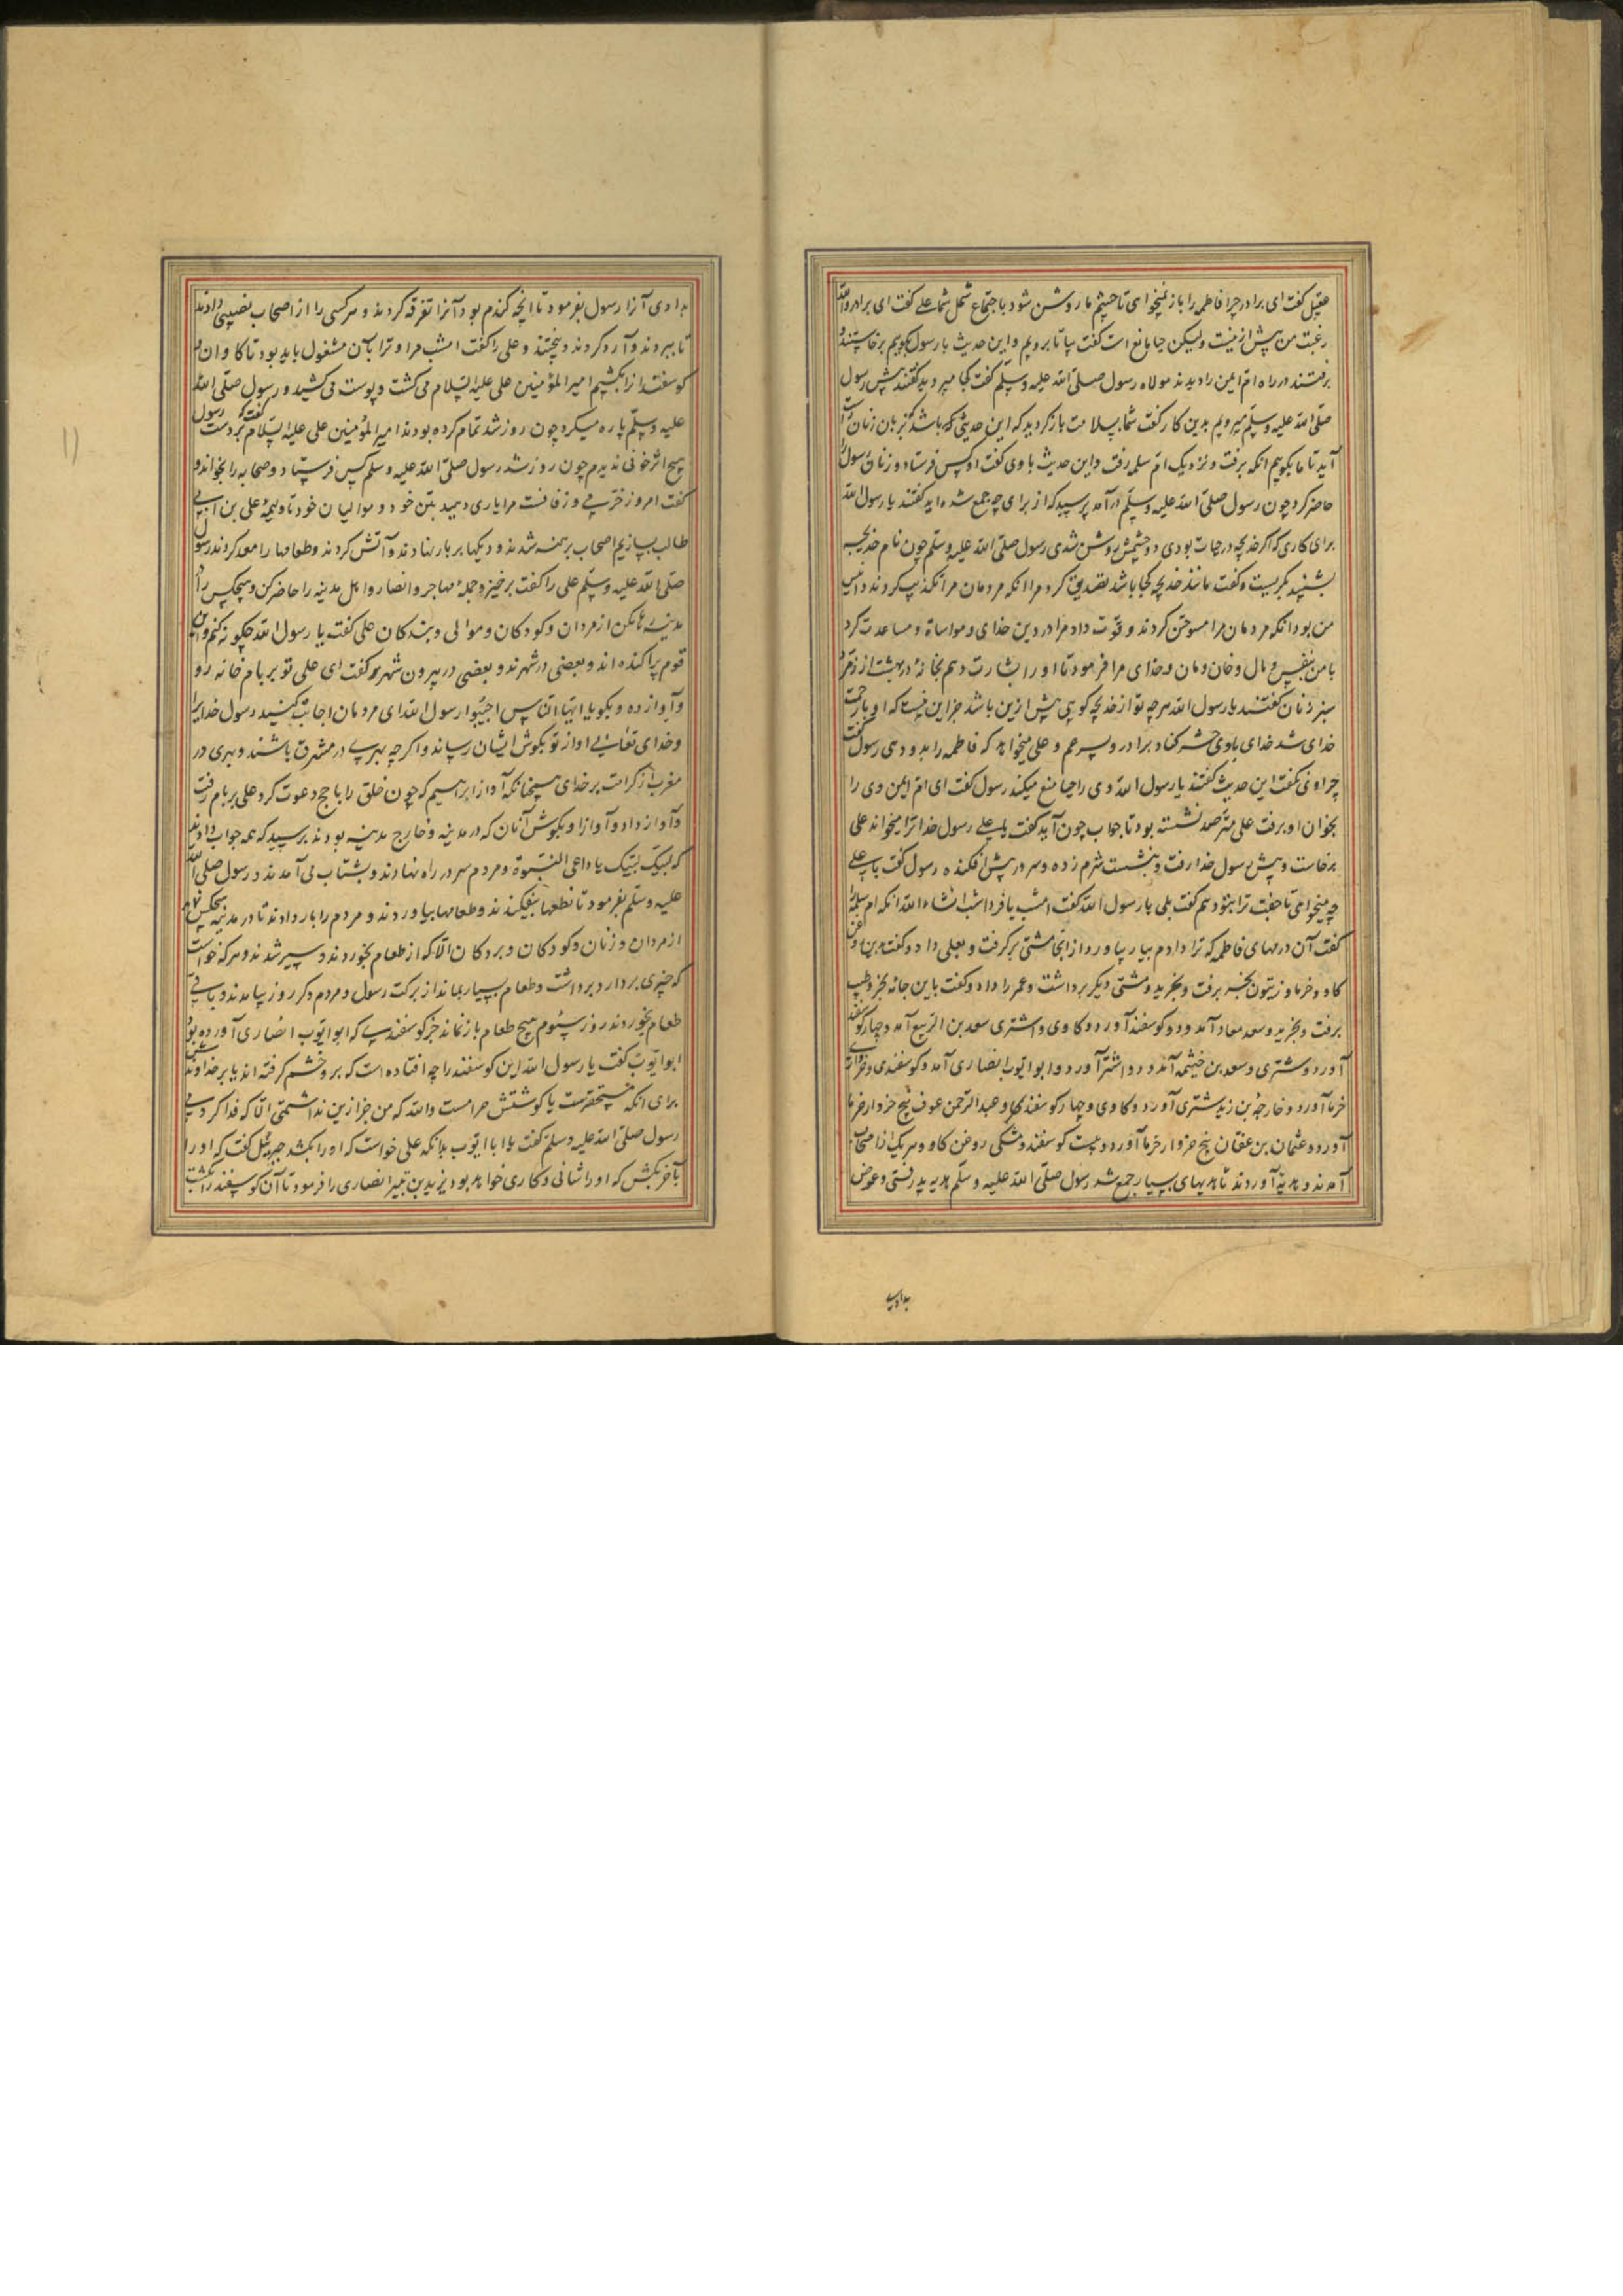 عقیل گفت ای برادر چرا فاطمه را باز نمیخوای تا چشم ما روشن شود باجتماع شمل شما علی گفت ای برادر والله
رغبت من پیش ازینست ولیکن حیا مانع است گفت بیا تا برویم و این حدیث با رسول بکوییم برخاستند و
برفتند در راه ام ایمن را دیدند مولاه رسول صلی الله علیه وسلم گفت کجا میروید گفتند پیش رسول
صلی الله علیه وسلم میرویم بدین کار گفت شما بسلامت باز کردید که این حدیثی که باشد کز بان زنان راست
آید تا ما بکوییم انکه برفت و نزدیک ام سلمه رفت و این حدیث با وی گفت او کس فرستاد و زنان رسول را
حاضر کرد چون رسول صلی الله علیه وسلم درآمد پرسید که از برای چه جمع شده اید گفتند یا رسول الله
برای کاری که اگر خدیجه در حیات بودی دو چشمش روشن شدی رسول صلی الله علیه وسلم چون نام خدیجه
بشنید بکریست و گفت مانند خدیجه کجا باشد تصدیق کرد مرا انکه مردمان مرا تکذیب کردند و انیس
من بود انکه مردمان مرا مستوحش کردند و قوت داد مرا در دین خدای و مواساة و مساعدت کرد
با من بنفس و مال و خان و مان و خدای مرا فرمود تا او را بشارت دهم بخانهٔ در بهشت از زمرد
سبز زنان گفتند یا رسول الله هرچه تو از خدیجه کویی پیش ازین باشد جز این نیست که او با رحمت
خدای شد خدای با وی حشر کناد برادر و پسر عم و علی میخواهد که فاطمه را بدو دهی رسول گفت
چرا او نی گفت این حدیث گفتند یا رسول الله وی را حیا منع میکند رسول گفت ای ام ایمن وی را
بخوان او برفت علی مترصد نشسته بود تا جواب چون آید گفت یا علی رسول خدا ترا میخواند علی
برخاست و پیش رسول خدا رفت و بنشست شرم زده و سر در پیش افکنده رسول گفت یا علی
چه میخواهی تا جفت ترا بتو دهم گفت بلی یا رسول الله گفت امشب یا فردا شب انشاء الله انکه ام سلمه را
گفت آن درمهای فاطمه که ترا دادم بیار بیاورد از انجا مشتی برکرفت و بعلی داد و گفت بدین روغن
کاو و خرما و زیتون بخر برفت و بخرید و مشتی دیکر برداشت و عمر را داد و گفت باین جامه بخر و طیب
برفت و بخرید و سعد معاد آمد و دو کوسفند آورد و کاوی و اشتری سعد بن الربیع آمد و چهار کوسفند
آورد و شتری و سعد بن خیثمه آمد و دو اشتر آورد و ابو ایوب انصاری آمد و کوسفندی و خرواری
خرما آورد و خارجه بن زید شتری آورد و کاوی و چهار کوسفند و عبد الرحمن عوف پنج خروار خرما
آورد و عثمان بن عفان پنج خروار خرما آورد و بیست کوسفند و مشکی روغن کاو و هر یک از اصحاب
آمدند و هدیهٔ آوردند تا هدیهای بسیار جمع شد رسول صلی الله علیه وسلم هدیه پذرفتی و عوض
بدادی
بدادی آنرا رسول بفرمود تا انچه کندم بود آنرا تفرقه کردند و هر کسی را از اصحاب نصیبی دادند
تا ببردند و آرد کردند و بپختند و علی را گفت امشب مرا و ترا بآن مشغول باید بود تا کاوان و
کوسفندانرا بکشیم امیر المؤمنین علی علیه السلام می کشت و پوست می کشید و رسول صلی الله
علیه وسلم پاره میکرد چون روز شد تمام کرده بودند امیر المؤمنین علی علیه السلام گفت که بر دست رسول
هیچ اثر خونی ندیدم چون روز شد رسول صلی الله علیه وسلم کس فرستاد و صحابه را بخواند و
گفت امروز خرمی و زفافست مرا یاری دهید بتن خود و موالیان خود تا ولیمهٔ علی بن ابی
طالب بسازیم اصحاب برهنه شدند و دیکها بر بار نهادند و آتش کردند و طعامها را معد کردند رسول
صلی الله علیه وسلم علی را گفت برخیز و جملهٔ مهاجر و انصار و اهل مدینه را حاضر کن و هیچکس را از
مدینه رها مکن از مردان و کودکان و موالی و بندکان علی گفت یا رسول الله چکونه کنم و این
قوم پراکنده اند و بعضی در شهرند و بعضی در بیرون شهر گفت ای علی تو بر بام خانه رو
و آواز ده و بکو یا ایها الناس اجیبوا رسول الله ای مردمان اجابت کنید رسول خدا را
و خدای تعالی اواز تو بکوش ایشان رساند و اکر چه بهری در مشرق باشند و بهری در
مغرب از کرامت بر خدای همچنانکه آواز ابراهیم که چون خلق را باحج دعوت کرد علی بر بام رفت
و آواز داد و آواز او بکوش آنان که در مدینه و خارج مدینه بودند برسید که همه جواب دادند
که لبیک لبیک یا داعی النبوة و مردم سر در راه نهادند و بشتاب می آمدند و رسول صلی الله
علیه وسلم بفرمود تا نطعها بیفکندند و طعامها بیاوردند و مردم را بار دادند تا در مدینه هیچکس نماند
از مردان و زنان و کودکان و بردکان الا که از طعام بخوردند و سیر شدند و هر که خواست
که چیزی بردارد برداشت و طعام بسیار بماند از برکت رسول و مردم دکر روز بیامدند و باقی
طعام بخوردند روز سیوم هیچ طعام باز نماند جز کوسفندی که ابو ایوب انصاری آورده بود
ابو ایوب گفت یا رسول الله این کوسفند را چه افتاده است که برو خشم کرفته اند یا بر خداوندش
برای انکه مستحقرست یا کوشتش حرامست والله که من جز ازین نداشتمی الا که فدا کردمی
رسول صلی الله علیه وسلم گفت یا ابا ایوب بدانکه علی خواست که او را بکشد جبرئیل گفت که او را
بآخر بکش که او را شانی و کاری خواهد بود یزید بن انصاری را فرمود تا آن کوسفند را بکشت